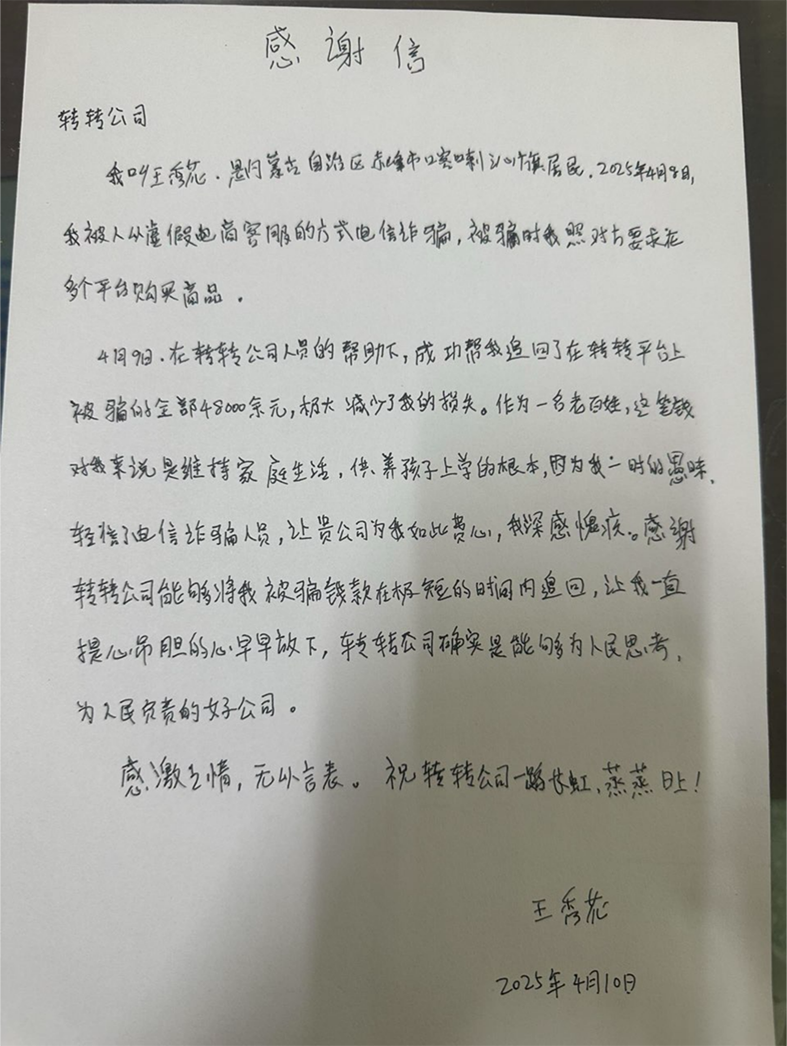 感谢信
转转公司
我叫王秀花.是内蒙古自治区赤峰市喀喇沁旗居民.2025年4月8日,
我被人以虚假电商客服的方式电信诈骗,被骗时我照对方要求在
多个平台购买商品。
4月9日.在转转公司人员的帮助下,成功帮我追回了在转转平台上
被骗的全部48000余元,极大减少了我的损失。作为一名老百姓,这笔钱
对我来说是维持家庭生活,供养孩子上学的根本,因为我一时的愚昧,
轻信了电信诈骗人员,让贵公司为我如此费心,我深感愧疚。感谢
转转公司能够将我被骗钱款在极短的时间内追回,让我一直
提心吊胆的心早早放下,转转公司确实是能够为人民思考,
为人民负责的好公司。
感激之情,无以言表。祝转转公司一路长虹,蒸蒸日上!
王秀花
2025年4月10日